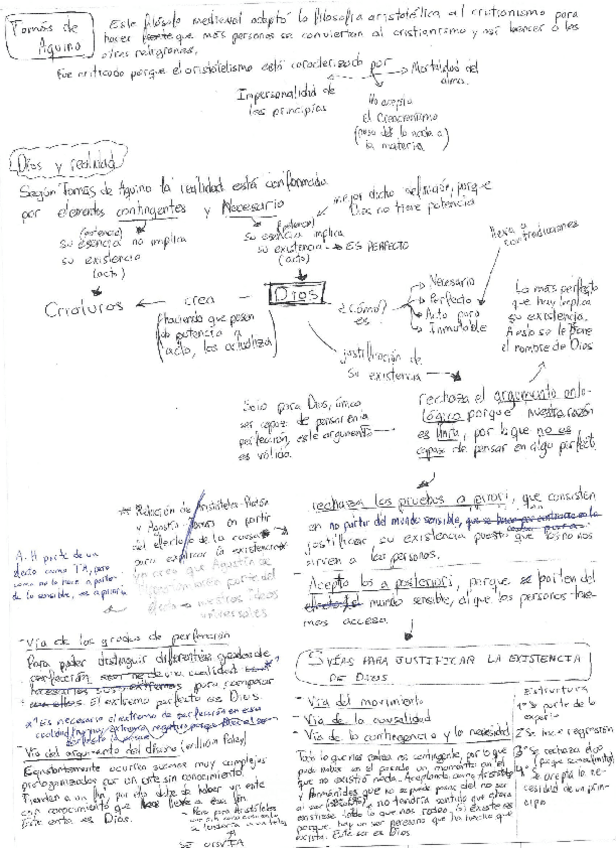 Tomás de Aquino
Este filósofo medieval adaptó la filosofía aristotélica al cristianismo para
hacer que más personas se conviertan al cristianismo y así vencer a las
otras religiones.
Fue criticado porque el aristotelismo está caracterizado por
Mortalidad del
alma.
Impersonalidad de
los principios
No acepta
el Creacionismo
(paso de la nada a)
la materia
Dios y realidad
Según Tomás de Aquino la realidad está conformada
por elementos contingentes y Necesario
mejor dicho definición, porque
Dios no tiene potencia
(potencia)
su esencia no implica
su existencia
(acto)
(potencia)
su esencia implica
su existencia → ES PERFECTO
(acto)
lleva a
contradicciones
Criaturas ← crea - Dios
(haciendo que pasen
de potencia a
acto, las actualiza)
¿Cómo?
es
Necesario
Perfecto
Acto puro
Inmutable
Lo más perfecto
que hay implica
su existencia.
A esto se le pone
el nombre de Dios
justificación de
su existencia
Solo para Dios, único
ser capaz de pensar en la
perfección, este argumento
es válido.
rechaza el argumento onto-
lógico porque nuestra razón
es finita, por lo que no es
capaz de pensar en algo perfecto.
rechaza las pruebas a priori, que consisten
en no partir del mundo sensible,
justificar su existencia puesto que no
sirven a las personas.
- Acepta las a posteriori, porque parten del
mundo sensible, al que las personas tene-
mos acceso.
Relación de Aristóteles-Platón
y Agustín-Tomás en partir
del efecto o de la causa
para explicar la existencia
A.H parte de un
efecto como TA, pero
como no lo hace a partir
de lo sensible, es a priori
creo que Agustín de
parte del
efecto → nuestras ideas
universales
- Vía de los grados de perfección
Para poder distinguir diferentes grados de
perfección una cualidad
para comparar
con ellos. El extremo perfecto es Dios.
es necesario el extremo de perfección en esa
cualidad
- Vía del argumento del diseño (William Paley)
Constantemente ocurren sucesos muy complejos
protagonizados por un ente sin conocimiento.
Tienden a un fin, por ello debe de haber un ente
con conocimiento que lleve a ese fin.
Este ente es Dios.
Pero para Aristóteles
5 VÍAS PARA JUSTIFICAR LA EXISTENCIA
DE DIOS
- Vía del movimiento
- Vía de la causalidad
- Vía de la contingencia y la necesidad
Todo lo que nos rodea es contingente, por lo que
pudo haber en el pasado un momento en el
que no existió nada. Aceptando como Aristóteles
y Parménides que no se puede pasar del no ser
al ser no tendría sentido que ahora
existiese todo lo que nos rodea, si existe es
porque hay un ser necesario que ha hecho que
exista. Este ser es Dios
Estructura
1º Se parte de la
2º Se hace regresión
3º Se rechaza
4º se acepta la ne-
cesidad de un prin-
cipio